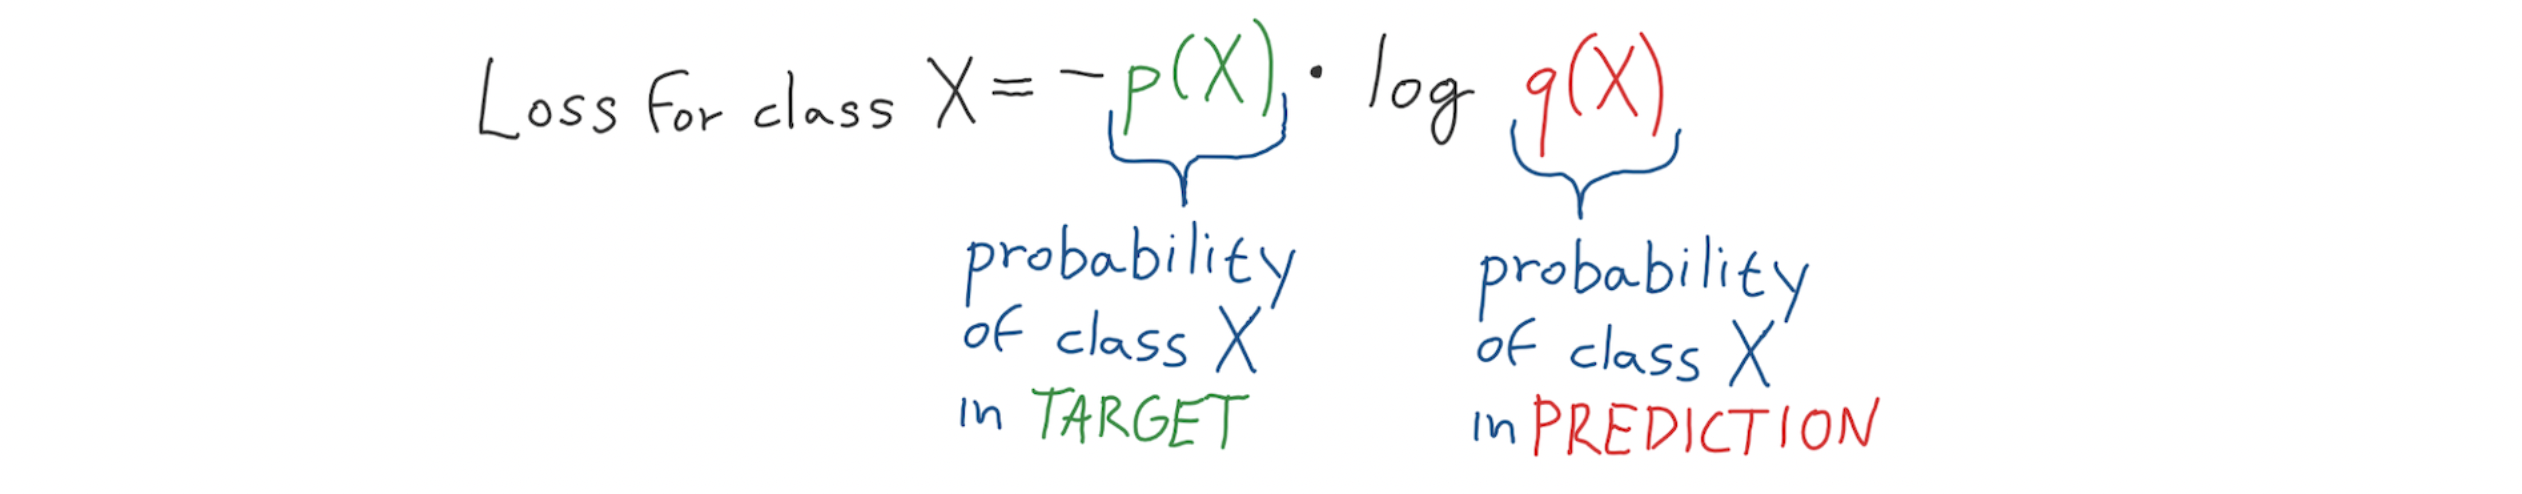 Loss for class X = - p(X) · log q(X)
probability
of class X
in TARGET
probability
of class X
in PREDICTION